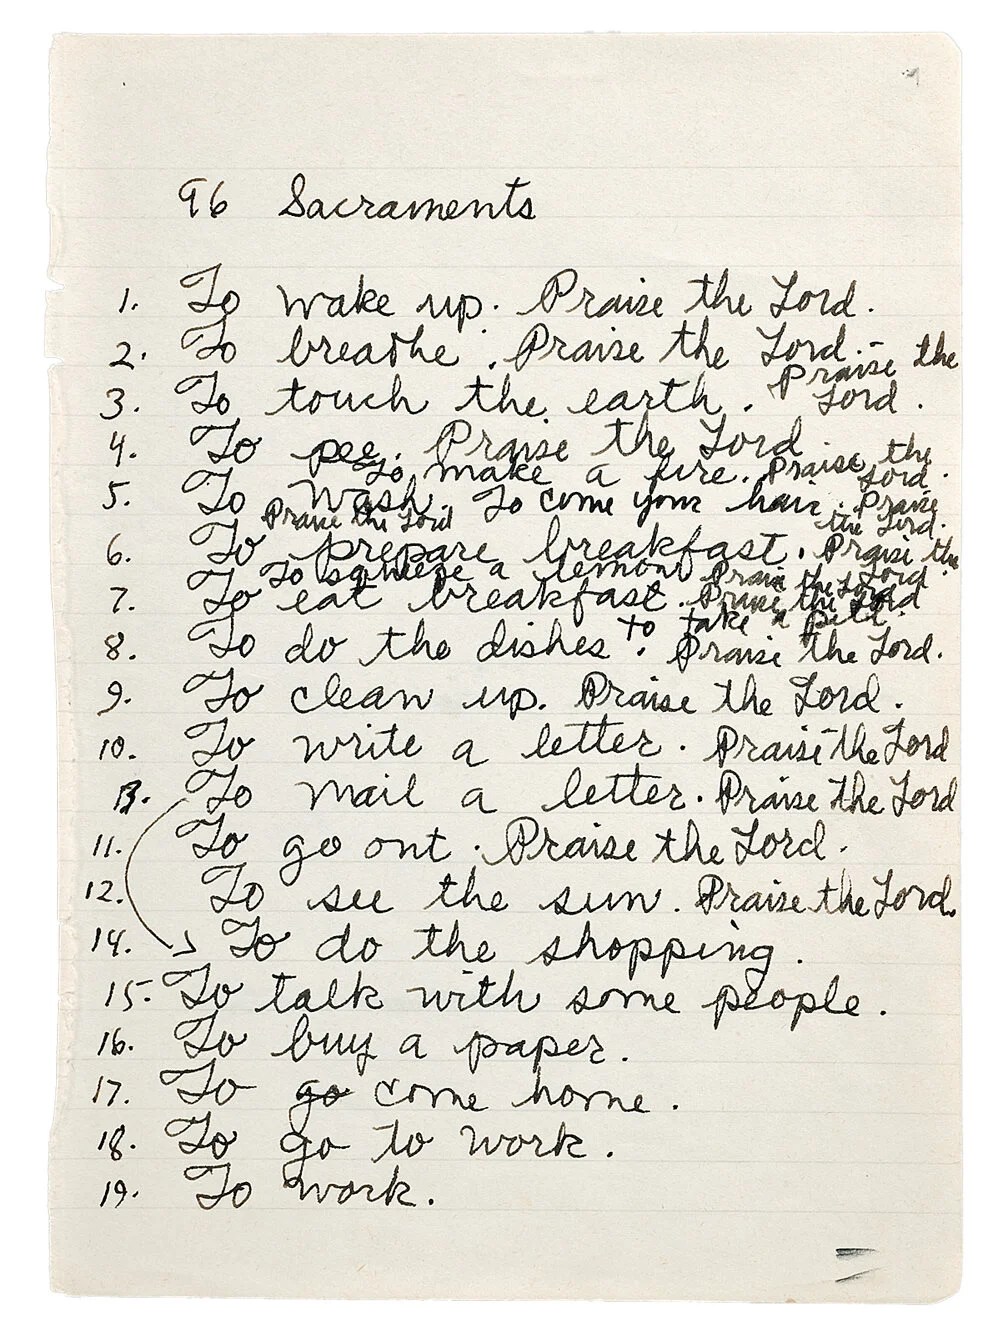 96 Sacraments
1. To wake up. Praise the Lord.
2. To breathe. Praise the Lord.
3. To touch the earth. Praise the Lord.
4. To pee. Praise the Lord
To make a fire. Praise the Lord.
5. To wash. To come your hair. Praise the Lord.
Praise the Lord
6. To prepare breakfast. Praise the Lord.
To squeeze a lemon Praise the Lord
7. To eat breakfast. Praise the Lord
to take a pill.
8. To do the dishes. Praise the Lord.
9. To clean up. Praise the Lord.
10. To write a letter. Praise the Lord
13. To mail a letter. Praise the Lord
11. To go out. Praise the Lord.
12. To see the sun. Praise the Lord.
14. To do the shopping.
15. To talk with some people.
16. To buy a paper.
17. To go come home.
18. To go to work.
19. To work.